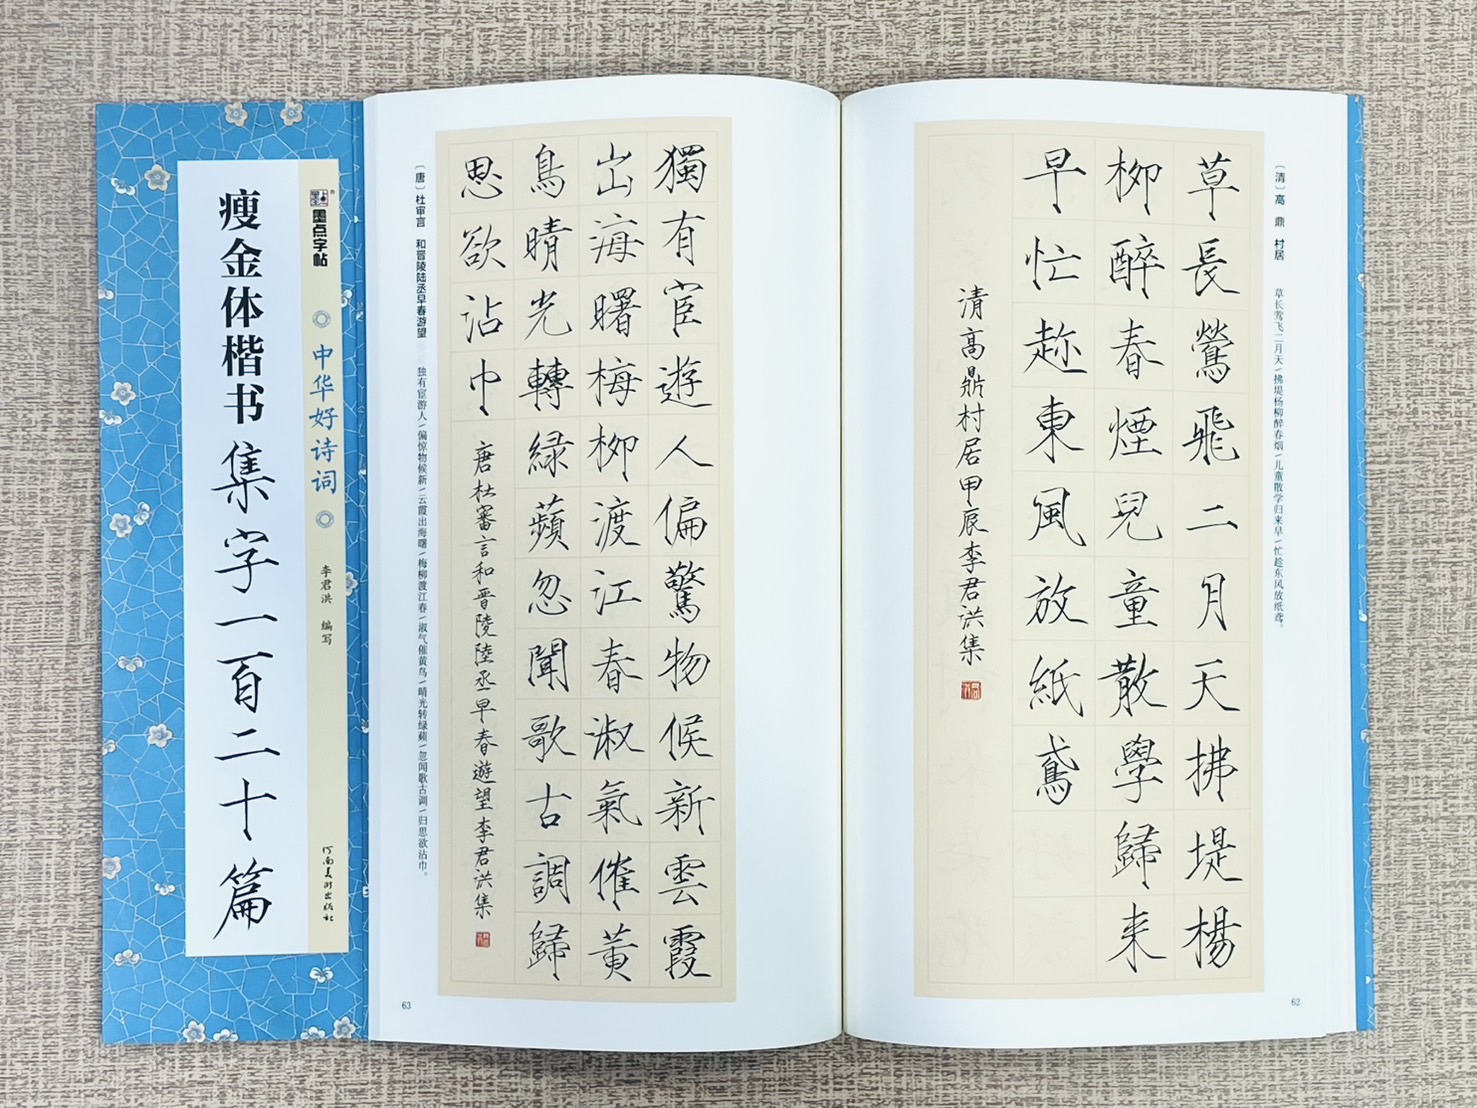 墨点字帖
中华好诗词
李君洪 编写
河南美术出版社
瘦金体楷书集字一百二十篇
〔清〕高鼎 村居 草长莺飞二月天/拂堤杨柳醉春烟/儿童散学归来早/忙趁东风放纸鸢。
草長鶯飛二月天拂堤楊
柳醉春煙兒童散學歸来
早忙趂東風放紙鳶
清高鼎村居甲辰李君洪集
62
獨有宦遊人偏驚物候新雲霞
出海曙梅柳渡江春淑氣催黄
鳥晴光轉緑蘋忽聞歌古調歸
思欲沾巾
唐杜審言和晋陵陸丞早春遊望李君洪集
〔唐〕杜审言 和晋陵陆丞早春游望 独有宦游人/偏惊物候新/云霞出海曙/梅柳渡江春/淑气催黄鸟/晴光转绿蘋/忽闻歌古调/归思欲沾巾。
63